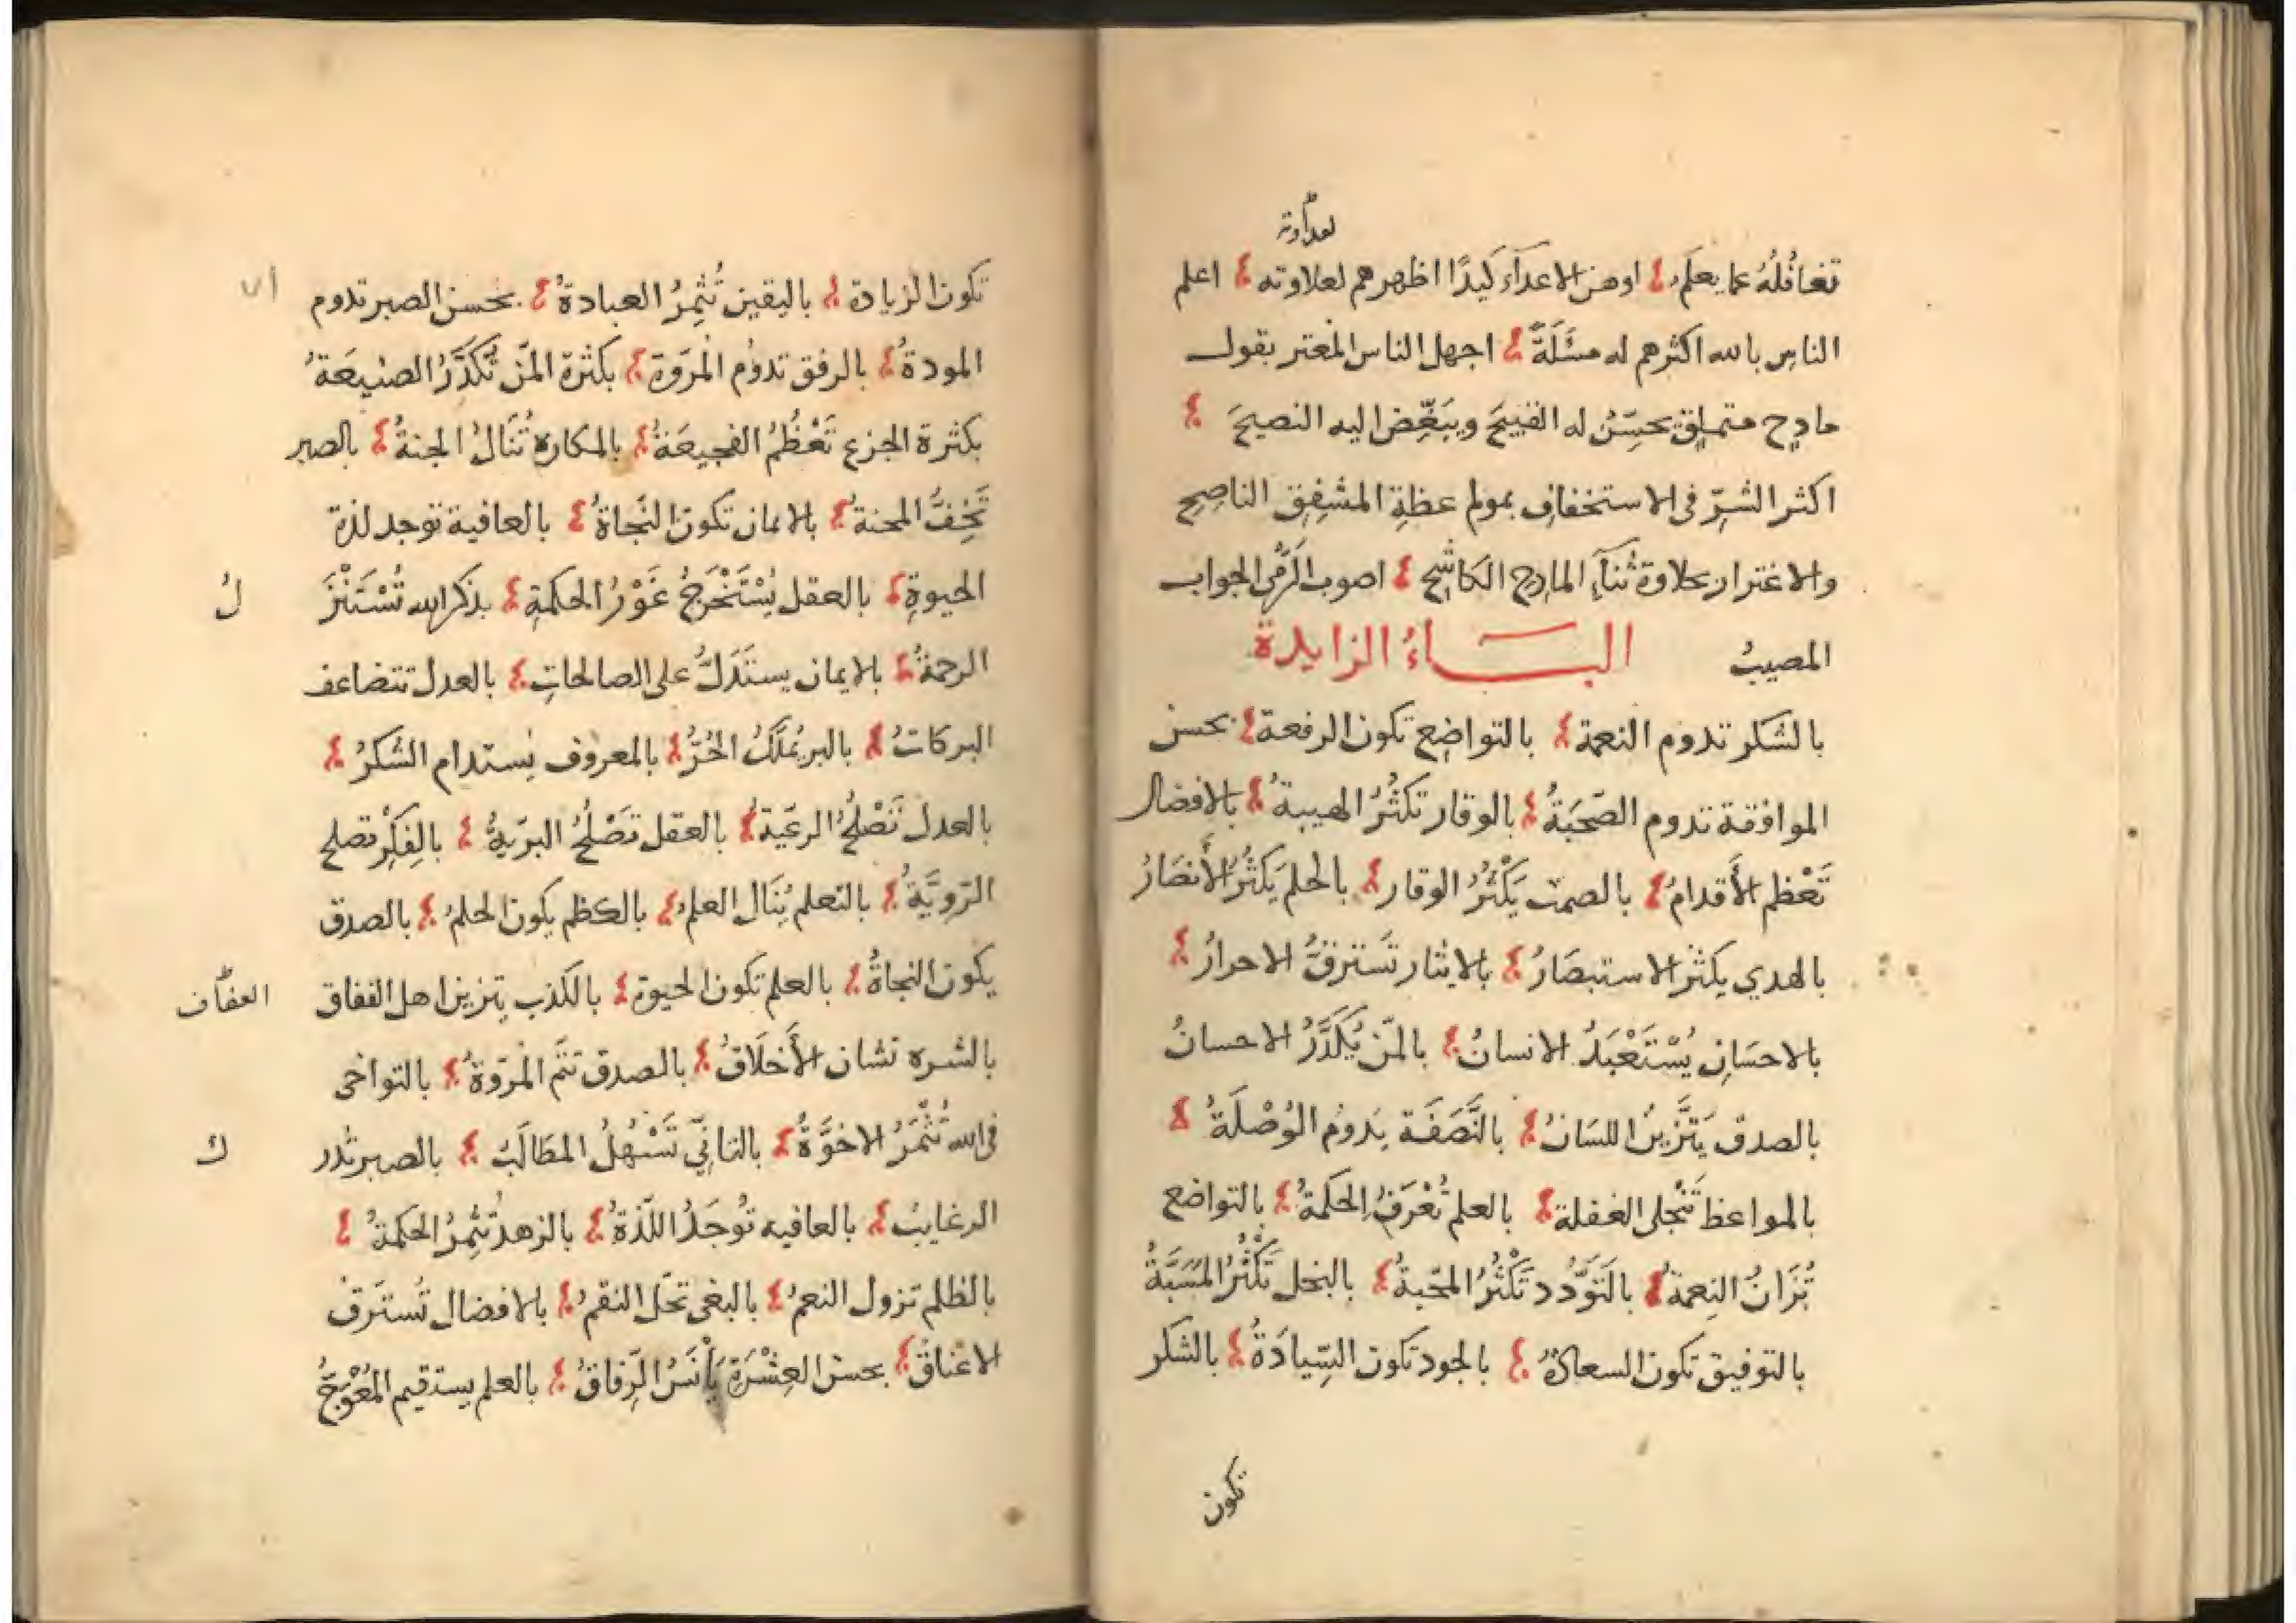 لعداوته
تغافُلُهُ عما يعلم؛ اوهن الاعدآء كَيدًا اظهرهم لعلاوته؛ اعلم
الناسِ بالله اكثرهم له مسْئَلَةً؛ اجهل الناس المغتر بقول
مادحٍ متملقٍ يحسّنُ له القبيحَ ويبَغِّض اليه النصيحَ؛
اكثر الشرّ في الاستخفافِ بمولم عظةِ المشفِقِ الناصِحِ
والاغترار بحلاوة ثنآءِ المادِحِ الكاشِحِ؛ اصوب الرَّمى الجواب
المصيبُ البـــاءُ الزايدة
بالشكر تدوم النعمة؛ بالتواضع تكون الرفعة؛ بحسن
الموافقة تدوم الصّحبَةُ؛ بالوقار تكثُرُ الهيبةُ؛ بالافضال
تَعْظم الأقدامُ؛ بالصمت يَكْثُرُ الوقار؛ بالحلم يَكثُرُ الأَنصَارُ
بالهدي يكثر الاستبصَارُ؛ بالايثار تَسترقُّ الاحرارُ؛
بالاحسَانِ يُسْتَعْبَدُ الانسانُ؛ بالمَنّ يُكَدَّرُ الاحسانُ
بالصدق يَتَزَّينُ اللسَانُ؛ بالنَّصَفَة يدومُ الوُصْلَةُ؛
بالمواعظ تَنْجلى الغفلة؛ بالعلم تُعْرَفُ الحكمةُ؛ بالتواضع
تُزَانُ النِعمة؛ بالتَوَدُّد تَكْثُرُ المحَبةُ؛ بالبخل تَكْثُرُ المَسَبَّةُ
بالتوفيق تكون السعادةُ؛ بالجود تكون السِّيادَةُ؛ بالشكر
تكون
تكون الزيادة؛ باليقين تُثمِرُ العبادةُ؛ بحسن الصبر تدوم
المودةُ؛ بالرفق تدوم المرَوّة؛ بكثرة المَنّ تَكَدَّرُ الصنيعَةُ
بكثرة الجزع تَعْظُمُ الفجيعَةُ؛ بالمكاره تُنَالُ الجنةُ؛ بالصبر
تَخِفُّ المحنةُ؛ بالايمان تكون النَجاةُ؛ بالعافية توجد لذة
الحيوةِ؛ بالعقل يُسْتَخْرَجُ غَوْرُ الحكمَةِ؛ بذكر الله تُسْتَنْزَ
لُ
الرحمةُ؛ بالايمان يستَدَلُّ على الصالحاتِ؛ بالعدل تتضاعف
البركاتُ؛ بالبر يُملَكُ الحُرُّ؛ بالمعروف يستدام الشكرُ؛
بالعدل تَصْلُحُ الرعيَة؛ بالعقل تَصْلُحُ البرّيةُ؛ بالفِكْرِ تصلح
الرَّوِيَّةُ؛ بالتعلم يُنَال العلم؛ بالكظم يكون الحلمُ؛ بالصدق
يكون النجاةُ؛ بالعلم تكون الحيوة؛ بالكذب يتزين اهل النفاق
بالشره تشان الأَخلَاقُ؛ بالصدق تتمّ المرَوّةُ؛ بالتواخى
فى الله تُثْمَرُ الاخوَّةُ؛ بالتانِّي تَسْهُلُ المطَالَبُ؛ بالصبر تُدر
ك
الرغايبُ؛ بالعافيه تُوجَدُ اللّذةُ؛ بالزهد تُثمِرُ الحكمةُ؛
بالظلم تزول النعمُ؛ بالبغى تحَل النقم؛ بالافضال تُستَرقُ
الاعناقُ؛ بحسن العِشْرَةِ يأنَسُ الرِّفاقُ؛ بالعلم يستقيم المُعْوَجُّ